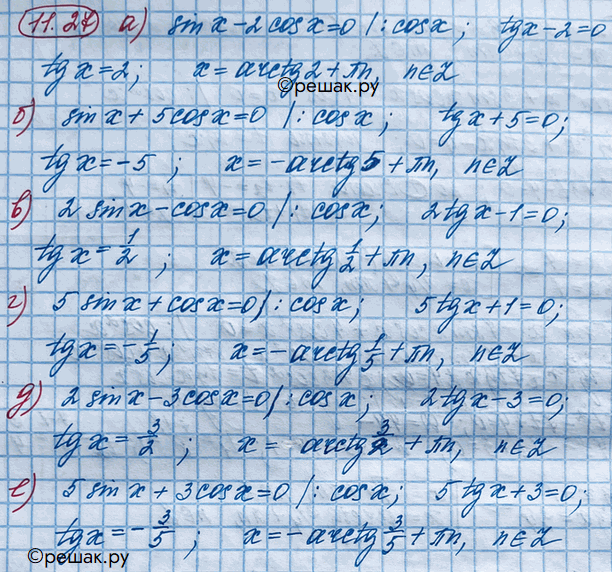 11.27 а) sin x - 2 cos x = 0 |: cos x ; tg x - 2 = 0
tg x = 2; x = arctg 2 + πn, n ∈ Z
©решак.ру
б) sin x + 5 cos x = 0 |: cos x ; tg x + 5 = 0;
tg x = -5 ; x = -arctg 5 + πn, n ∈ Z
в) 2 sin x - cos x = 0 |: cos x; 2 tg x - 1 = 0;
tg x = 1/2 ; x = arctg 1/2 + πn, n ∈ Z
г) 5 sin x + cos x = 0 |: cos x; 5 tg x + 1 = 0;
tg x = -1/5 ; x = -arctg 1/5 + πn, n ∈ Z
д) 2 sin x - 3 cos x = 0 |: cos x; 2 tg x - 3 = 0;
tg x = 3/2 ; x = arctg 3/2 + πn, n ∈ Z
е) 5 sin x + 3 cos x = 0 |: cos x; 5 tg x + 3 = 0;
tg x = -3/5 ; x = -arctg 3/5 + πn, n ∈ Z
©решак.ру